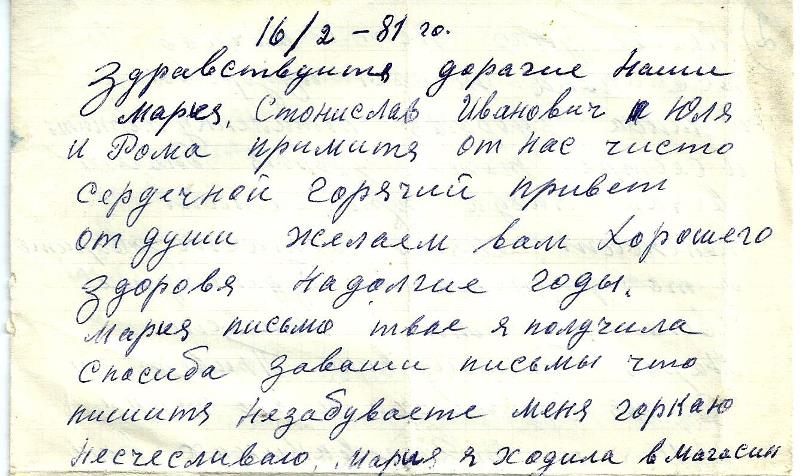 16/2 – 81 го.
Здравствуйтя дорагие наши
Мария, Стонислав Иванович и Юля
и Рома примитя от нас чисто
сердечной горячий привет
от души желаем вам хорошего
здоровя надолгие годы.
Мария письмо твае я получила
спосиба заваши письмы что
пишитя незабуваете меня горкаю
несчесливаю. Мария я ходила в магасин